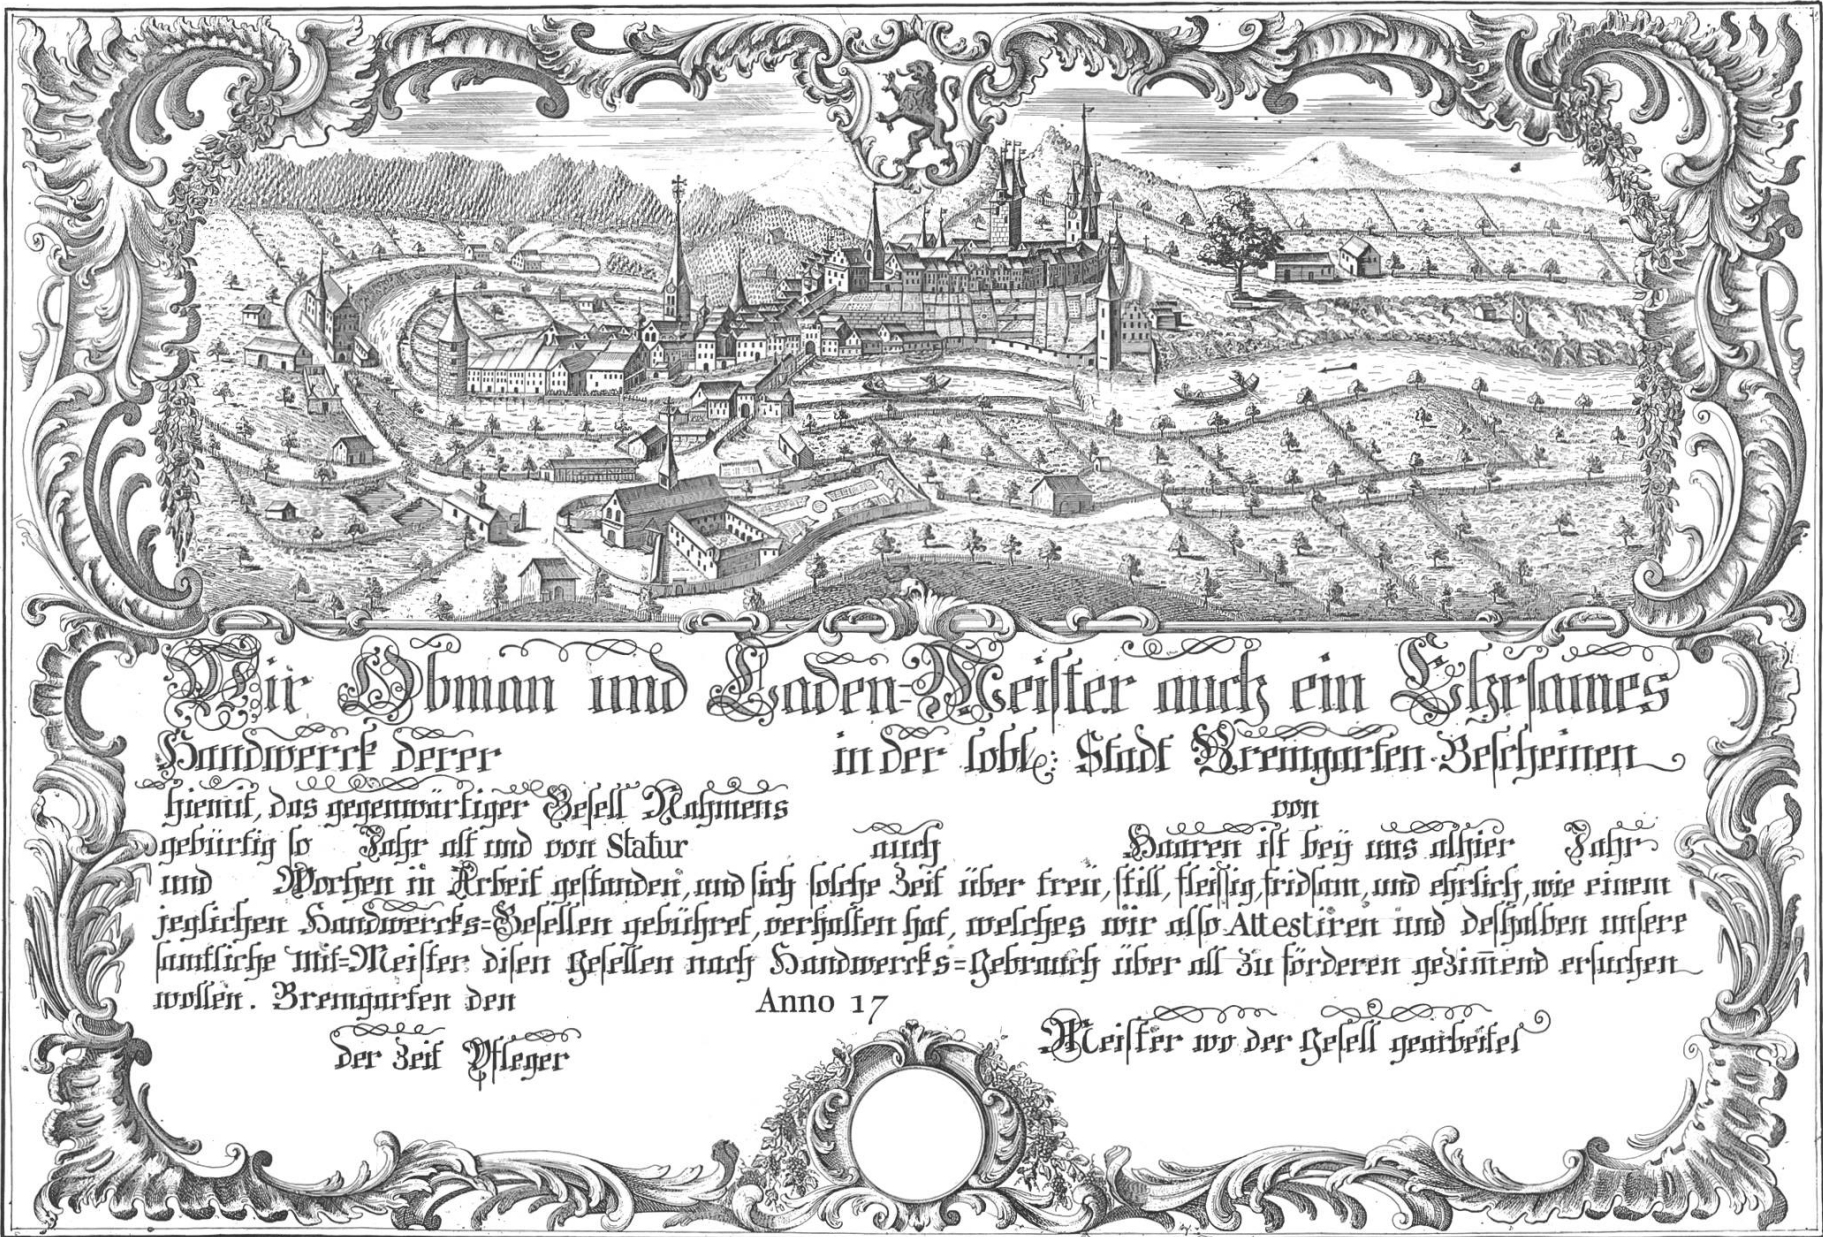 Wir Obman und Laden=Meister auch ein Ehrsames
Handwerck derer in der lobl: Stadt Bremgarten Bescheinen
hiemit, das gegenwärtiger Gesell Nahmens von
gebürtig so Jahr alt und von Statur auch Haaren ist bey uns alhier Jahr
und Wochen in Arbeit gestanden, und sich solche Zeit über treü, still, fleissig, fridsam, und ehrlich, wie einem
jeglichen Handwercks=Gesellen gebühret, verhalten hat, welches wir also Attestiren und deshalben unsere
samtliche Mit=Meister disen Gesellen nach Handwercks=Gebrauch über all zu förderen gezim̄end ersuchen
wollen. Bremgarten den Anno 17
der Zeit Pfleger
Meister wo der Gesell gearbeitet